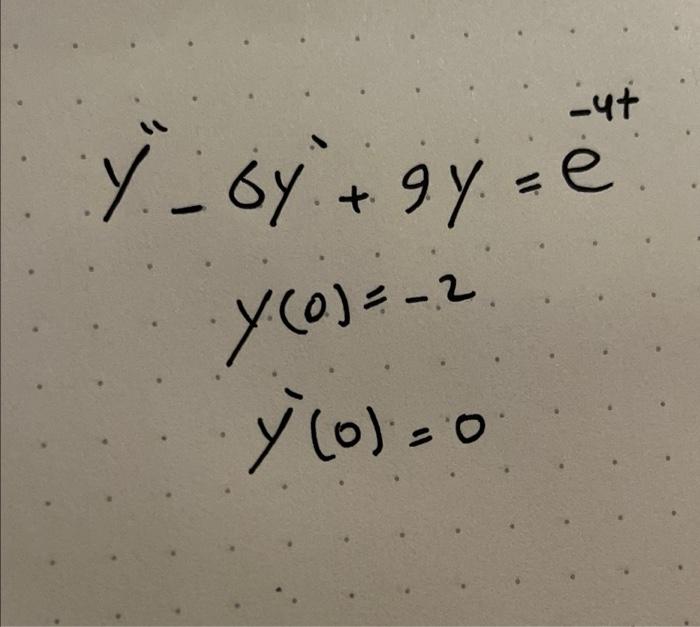 y'' - 6y' + 9y = e^{-4t}
y(0) = -2
y'(0) = 0